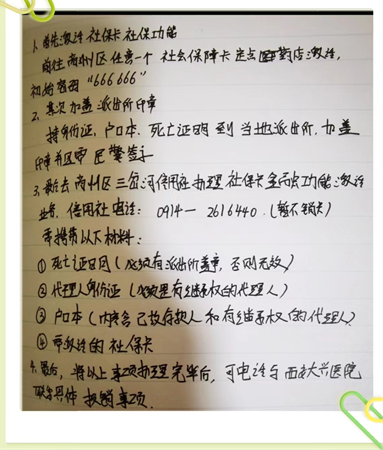 1、首先激活社保卡社保功能
前往商州区任意一个社会保障卡定点医药店激活,
初始密码“666666”
2、其次加盖派出所印章
持身份证、户口本、死亡证明到当地派出所,加盖
印章并区需民警签字
3、最后去商州区三岔河信用社办理社保卡金融功能激活
业务,信用社电话:0914-2616440.(暂不销户)
需携带以下材料:
①死亡证明(必须有派出所盖章,否则无效)
②代理人身份证(必须是有继承权的代理人)
③户口本(内容含已故存款人和有继承权的代理人)
④需激活的社保卡
4、最后,将以上事项办理完毕后,可电话与西安大兴医院
联系具体报销事项.